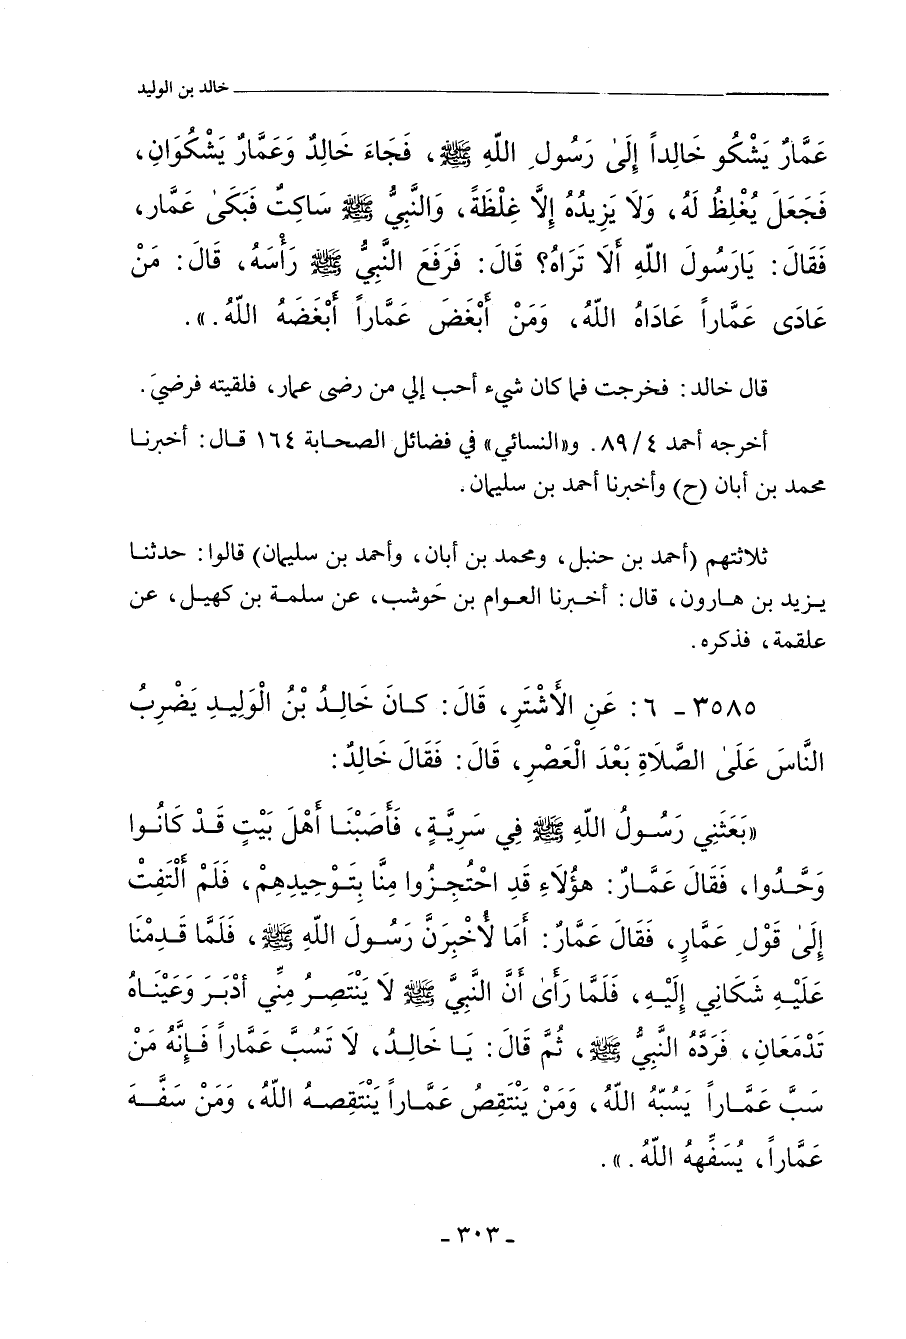 خالد بن الوليد
عَمَّارٌ يَشْكُو خَالِداً إِلَىٰ رَسُولِ اللّهِ ﷺ، فَجَاءَ خَالِدٌ وَعَمَّارٌ يَشْكُوَانِ،
فَجَعَلَ يُغْلِظُ لَهُ، وَلَا يَزِيدُهُ إِلَّا غِلْظَةً، وَالنَّبِيُّ ﷺ سَاكِتٌ فَبَكَىٰ عَمَّار،
فَقَالَ: يَارَسُولَ اللّهِ أَلَا تَرَاهُ؟ قَالَ: فَرَفَعَ النَّبِيُّ ﷺ رَأْسَهُ، قَالَ: مَنْ
عَادَى عَمَّاراً عَادَاهُ اللّهُ، وَمَنْ أَبْغَضَ عَمَّاراً أَبْغَضَهُ اللّهُ.».
قال خالد: فخرجت فما كان شيء أحب إلي من رضى عمار، فلقيته فرضيَ.
أخرجه أحمد ٤/ ٨٩. و«النسائي» في فضائل الصحابة ١٦٤ قال: أخبرنا
محمد بن أبان (ح) وأخبرنا أحمد بن سليمان.
ثلاثتهم (أحمد بن حنبل، ومحمد بن أبان، وأحمد بن سليمان) قالوا: حدثنا
يزيد بن هارون، قال: أخبرنا العوام بن حَوشب، عن سلمة بن كهيل، عن
علقمة، فذكره.
٣٥٨٥ ـ ٦: عَنِ الأَشْتَرِ، قَالَ: كَانَ خَالِدُ بْنُ الْوَلِيدِ يَضْرِبُ
النَّاسَ عَلَىٰ الصَّلَاةِ بَعْدَ الْعَصْرِ، قَالَ: فَقَالَ خَالِدٌ:
«بَعَثَنِي رَسُولُ اللّهِ ﷺ فِي سَرِيَّةٍ، فَأَصَبْنَا أَهْلَ بَيْتٍ قَدْ كَانُوا
وَحَّدُوا، فَقَالَ عَمَّارٌ: هؤُلَاءِ قَدِ احْتُجِزُوا مِنَّا بِتَوْحِيدِهِمْ، فَلَمْ أَلْتَفِتْ
إِلَىٰ قَوْلِ عَمَّارٍ، فَقَالَ عَمَّارٌ: أَمَا لأُخْبِرَنَّ رَسُولَ اللّهِ ﷺ، فَلَمَّا قَدِمْنَا
عَلَيْهِ شَكَانِي إِلَيْهِ، فَلَمَّا رَأَىٰ أَنَّ النَّبِيَّ ﷺ لَا يَنْتَصِرُ مِنِّي أدْبَرَ وَعَيْنَاهُ
تَدْمَعَانِ، فَرَدَّهُ النَّبِيُّ ﷺ، ثُمَّ قَالَ: يَا خَالِدُ، لَا تَسُبَّ عَمَّاراً فَإِنَّهُ مَنْ
سَبَّ عَمَّاراً يَسُبّهُ اللّهُ، وَمَنْ يَنْتَقِصُ عَمَّاراً يَنْتَقِصهُ اللّهُ، وَمَنْ سَفَّهَ
عَمَّاراً، يُسَفِّههُ اللّهُ.».
ـ ٣٠٣ ـ